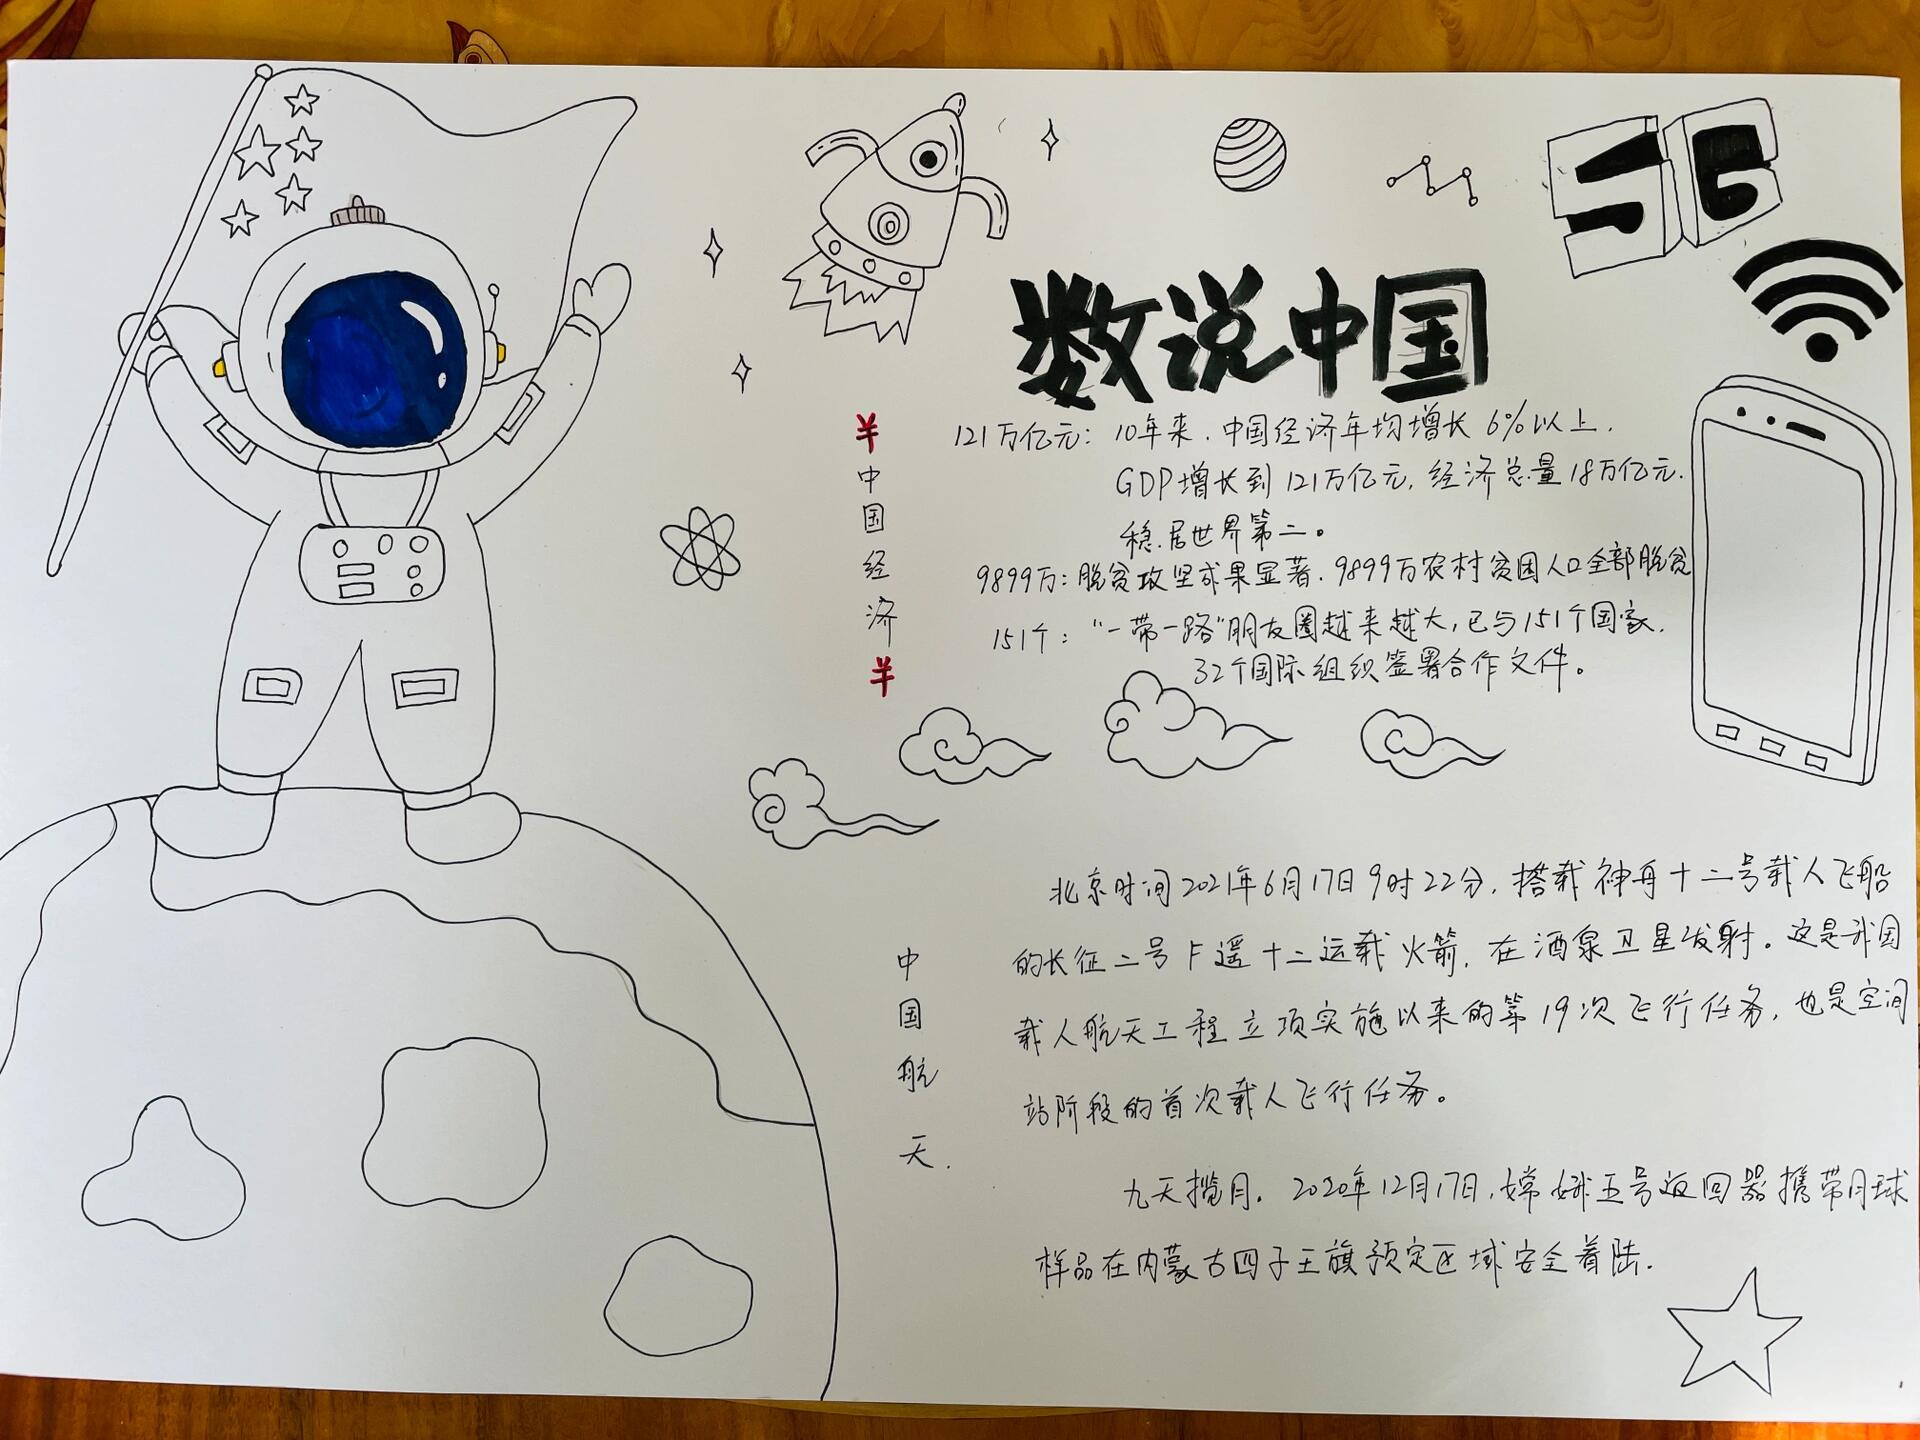 5G
数说中国
¥中国经济¥
121万亿元：10年来，中国经济年均增长6%以上，
GDP增长到121万亿元，经济总量18万亿元，
稳居世界第二。
9899万：脱贫攻坚成果显著，9899万农村贫困人口全部脱贫
151个："一带一路"朋友圈越来越大，已与151个国家，
32个国际组织签署合作文件。
中国航天.
北京时间2021年6月17日9时22分，搭载神舟十二号载人飞船
的长征二号F遥十二运载火箭，在酒泉卫星发射。这是我国
载人航天工程立项实施以来的第19次飞行任务，也是空间
站阶段的首次载人飞行任务。
九天揽月。2020年12月17日，嫦娥五号返回器携带月球
样品在内蒙古四子王旗预定区域安全着陆.